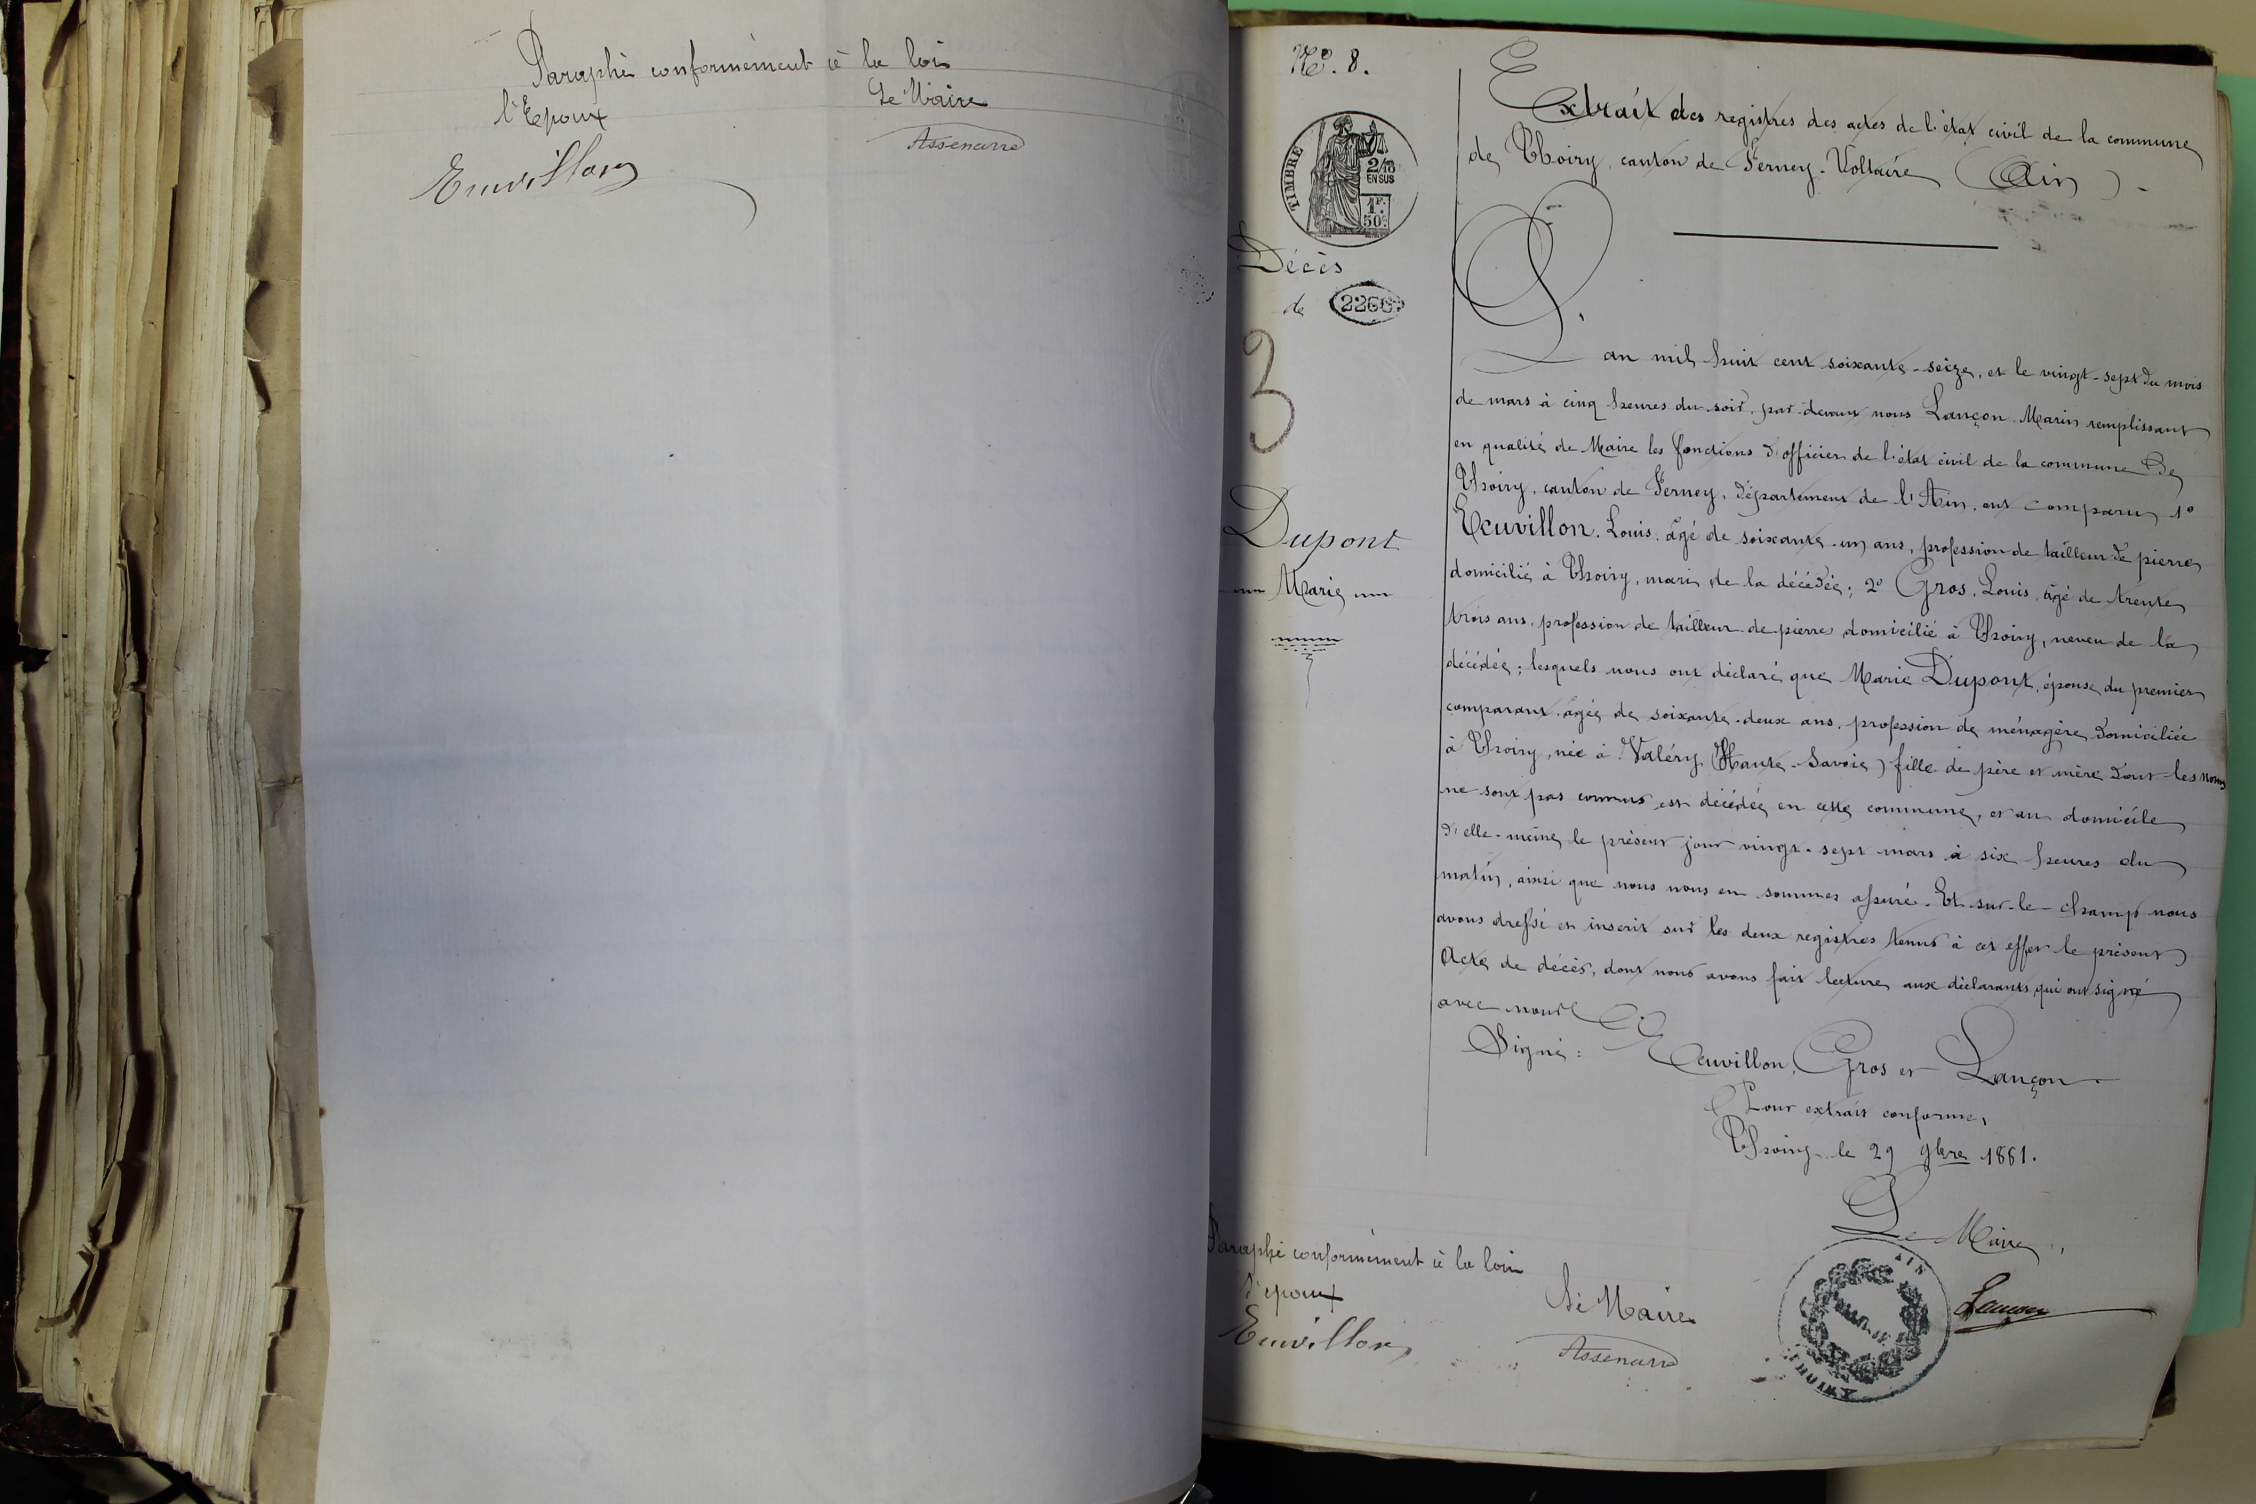 Paraphé conformément à la loi
l'Epoux
Le Maire
Assenarre
Euvillon
N°. 8.
TIMBRE
2/10
EN SUS
1F.
50c.
Décès
de
2266
3
Dupont
Marie
Extrait des registres des actes de l'état civil de la commune
de Thoiry, canton de Ferney-Voltaire (Ain) -
L'an mil huit cent soixante-seize, et le vingt-sept du mois
de mars à cinq heures du soir, par-devant nous Lançon Marin remplissant
en qualité de Maire les fonctions d'officier de l'état civil de la commune de
Thoiry, canton de Ferney, département de l'Ain, ont comparu 1°
Euvillon, Louis, âgé de soixante-un ans, profession de tailleur de pierre
domicilié à Thoiry, mari de la décédée; 2° Gros, Louis, âgé de trente
trois ans, profession de tailleur de pierre domicilié à Thoiry, neveu de la
décédée; lesquels nous ont déclaré que Marie Dupont, épouse du premier
comparant, âgée de soixante-deux ans, profession de ménagère domiciliée
à Thoiry, née à Valéry (Haute-Savoie) fille de père et mère dont les noms
ne sont pas connus est décédée en cette commune, et au domicile
d'elle-même le présent jour vingt-sept mars à six heures du
matin, ainsi que nous nous en sommes assuré. Et sur-le-champ nous
avons dressé et inscrit sur les deux registres tenus à cet effet le présent
Acte de décès, dont nous avons fait lecture aux déclarants qui ont signé
avec nous
Signé: Euvillon, Gros et Lançon.
Pour extrait conforme,
Thoiry le 29 9bre 1881.
Le Maire,
Lançon
AIN
THOIRY
Paraphé conformément à la loi
l'époux
Le Maire
Euvillon
Assenarre